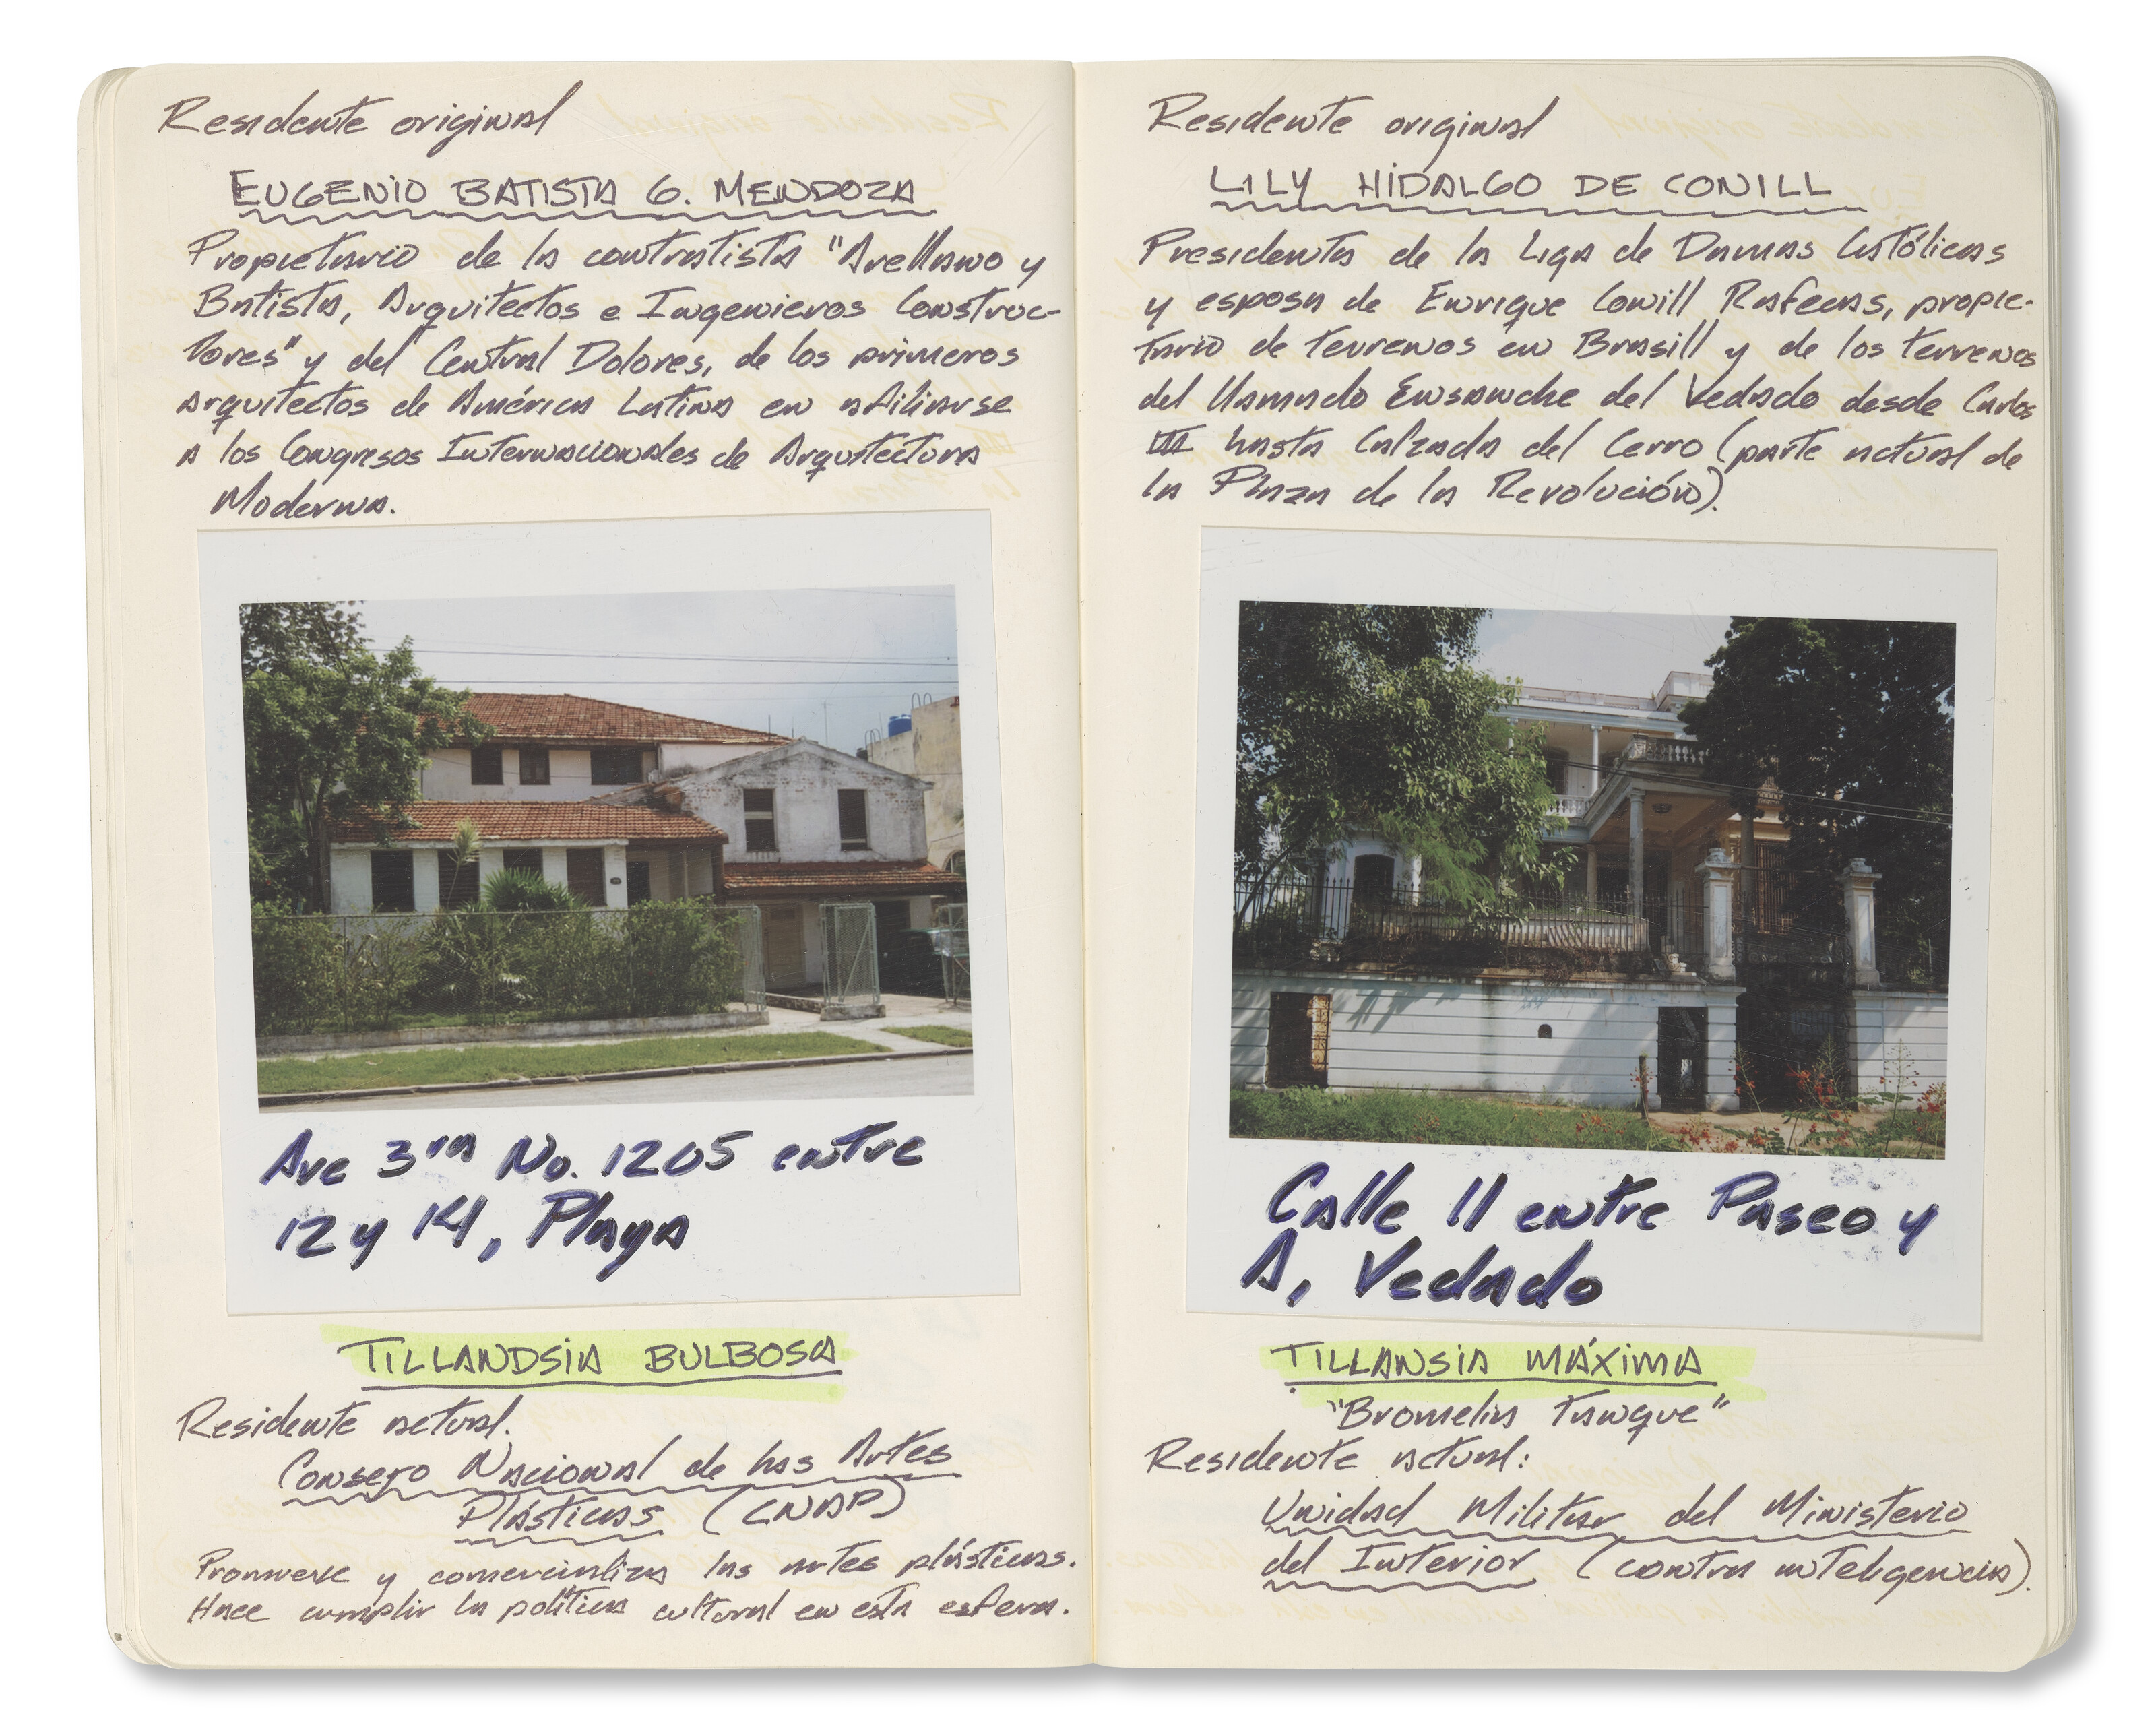 Residente original
EUGENIO BATISTA G. MENDOZA
Propietario de la contratista "Arellano y
Batista, Arquitectos e Ingenieros Construc-
tores" y del Central Dolores, de los primeros
arquitectos de América Latina en afiliarse
a los Congresos Internacionales de Arquitectura
Moderna.
Ave 3ra No. 1205 entre
12 y 14, Playa
TILLANDSIA BULBOSA
Residente actual.
Consejo Nacional de las Artes
Plásticas (CNAP)
Promueve y comercializa las artes plásticas.
Hace cumplir la política cultural en esta esfera.
Residente original
LILY HIDALGO DE CONILL
Presidenta de la Liga de Damas Católicas
y esposa de Enrique Conill Rafecas, propie-
tario de terrenos en Brasill y de los terrenos
del llamado Ensanche del Vedado desde Carlos
III hasta Calzada del Cerro (parte actual de
la Plaza de la Revolución).
Calle 11 entre Paseo y
A, Vedado
TILLANSIA MÁXIMA
"Bromelia Tanque"
Residente actual:
Unidad Militar del Ministerio
del Interior (contra inteligencia).